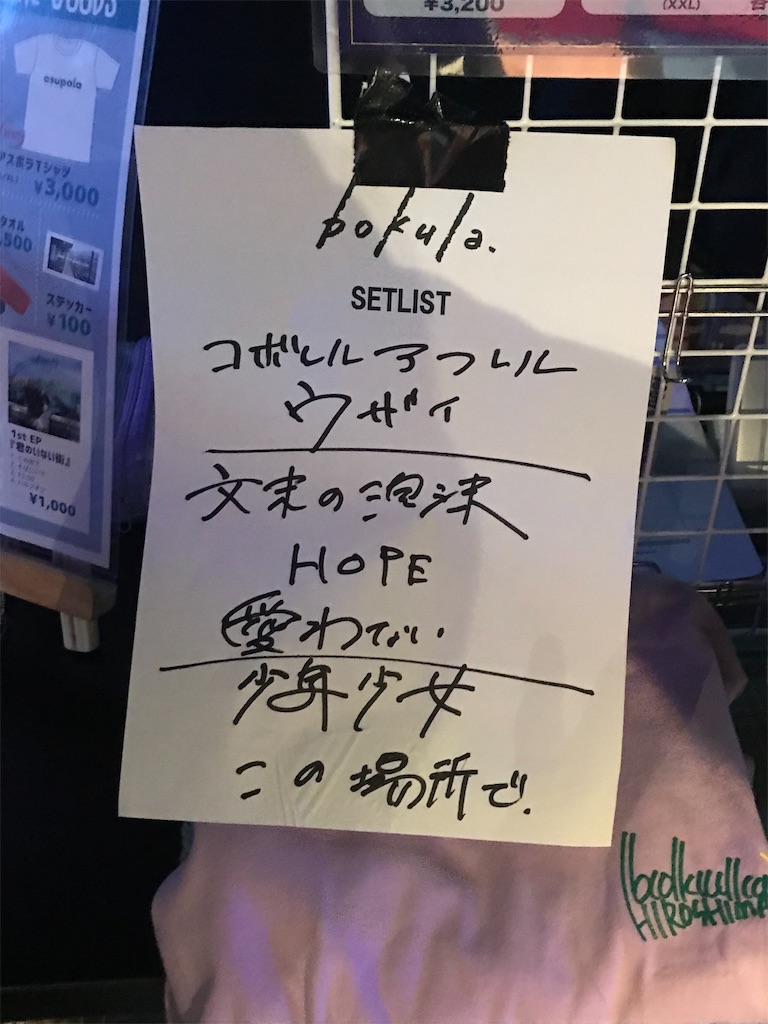 GOODS
asupola
アスポラTシャツ
¥3,000
タオル
,500
ステッカー
¥100
1st EP
『君のいない街』
¥1,000
¥3,200
(XXL)
bokula.
SETLIST
コボレルアフレル
ウザイ
文末の泡沫
HOPE
愛わない
少年少女
この場所で.
bokula
HIROSHIMA